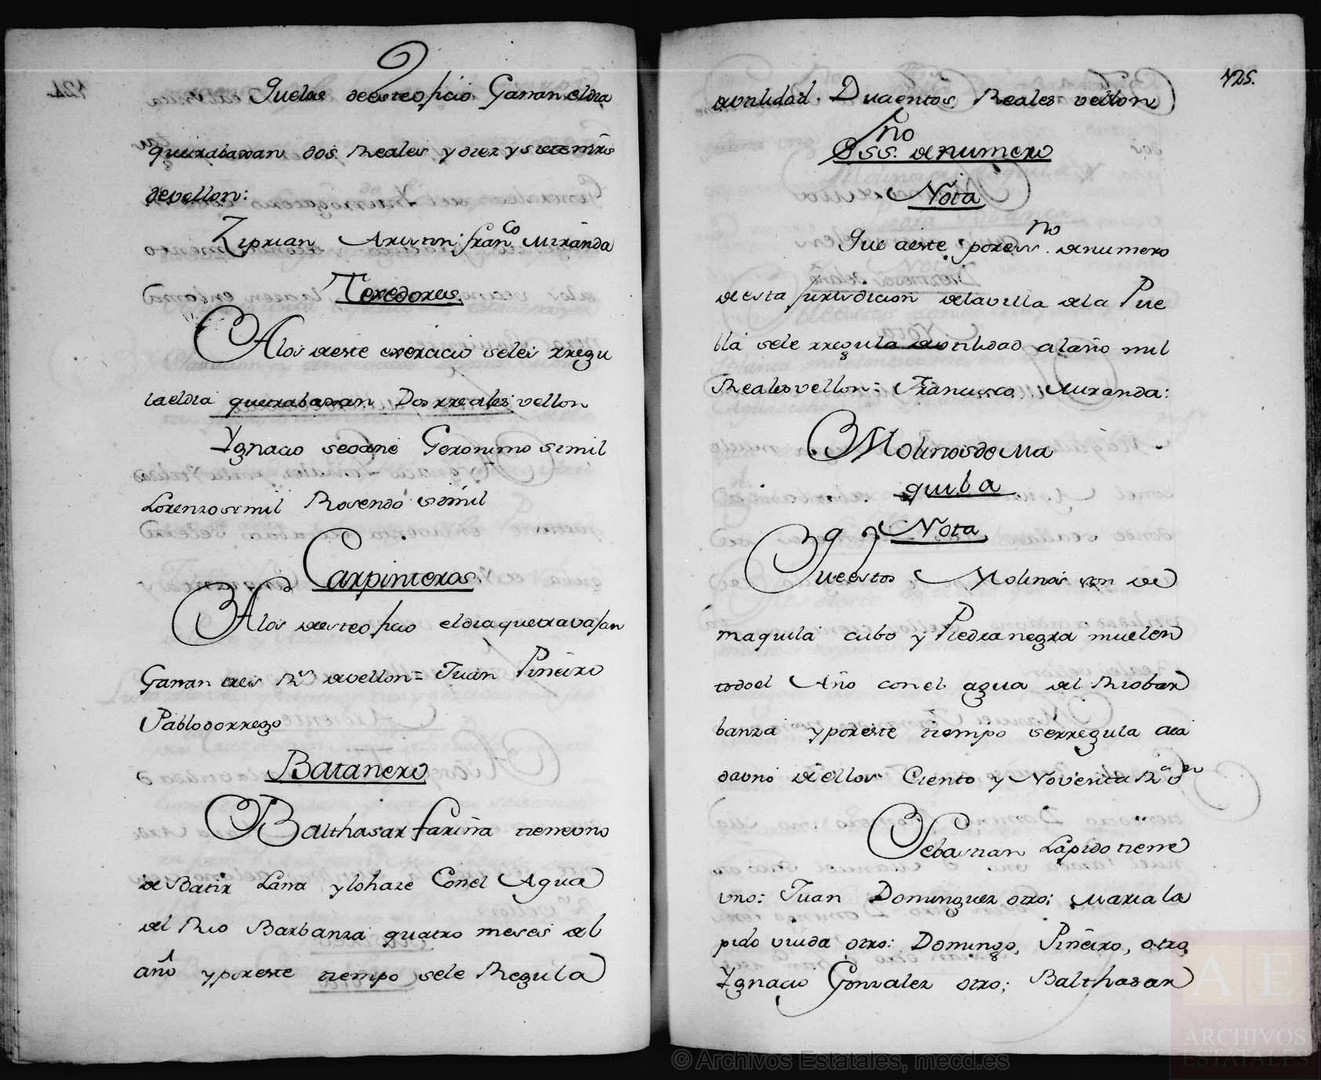 Que los de este oficio Ganan el dia
que trabaxan dos Reales y diez y siete mrs
de vellon:
Ziprian Agustin; Franco Miranda
Texedores
A los de este exercicio se les rregu
la el dia que trabaxan Dos rreales vellon
Ygnacio seoane Geronimo semil
Lorenzo semil Rosendo semil
Carpinteros
A los de este oficio el dia que travajan
Ganan tres Rs de vellon = Juan Piñeiro
Pablo dorrego
Batanero
Balthasar fariña tiene uno
de Batir Lana y lo haze Con el Agua
del Rio Barbanza quatro meses del
año y por este tiempo se le Regula
125.
de utilidad. Ducientos Reales vellon
Essno de numero
Nota
Que a este por essno de numero
de esta jurisdicion de la villa de la Pue
bla se le rregula de utilidad al año mil
Reales vellon = Francisco Miranda:
Molinos de Ma
quila
Nota
Que estos Molinos son de
maquila cubo y Piedra negra muelen
todo el Año con el agua del Rio bar
banza y por este tiempo se rregula a ca
da uno de ellos Ciento y Noventa Rs von
Sebastian Lapido tiene
uno: Juan Dominguez otro; Maria la
pido viuda otro: Domingo Piñeiro, otro
Ygnacio Gonzalez otro; Balthasar
AE
ARCHIVOS
ESTATALES
© Archivos Estatales, mecd.es